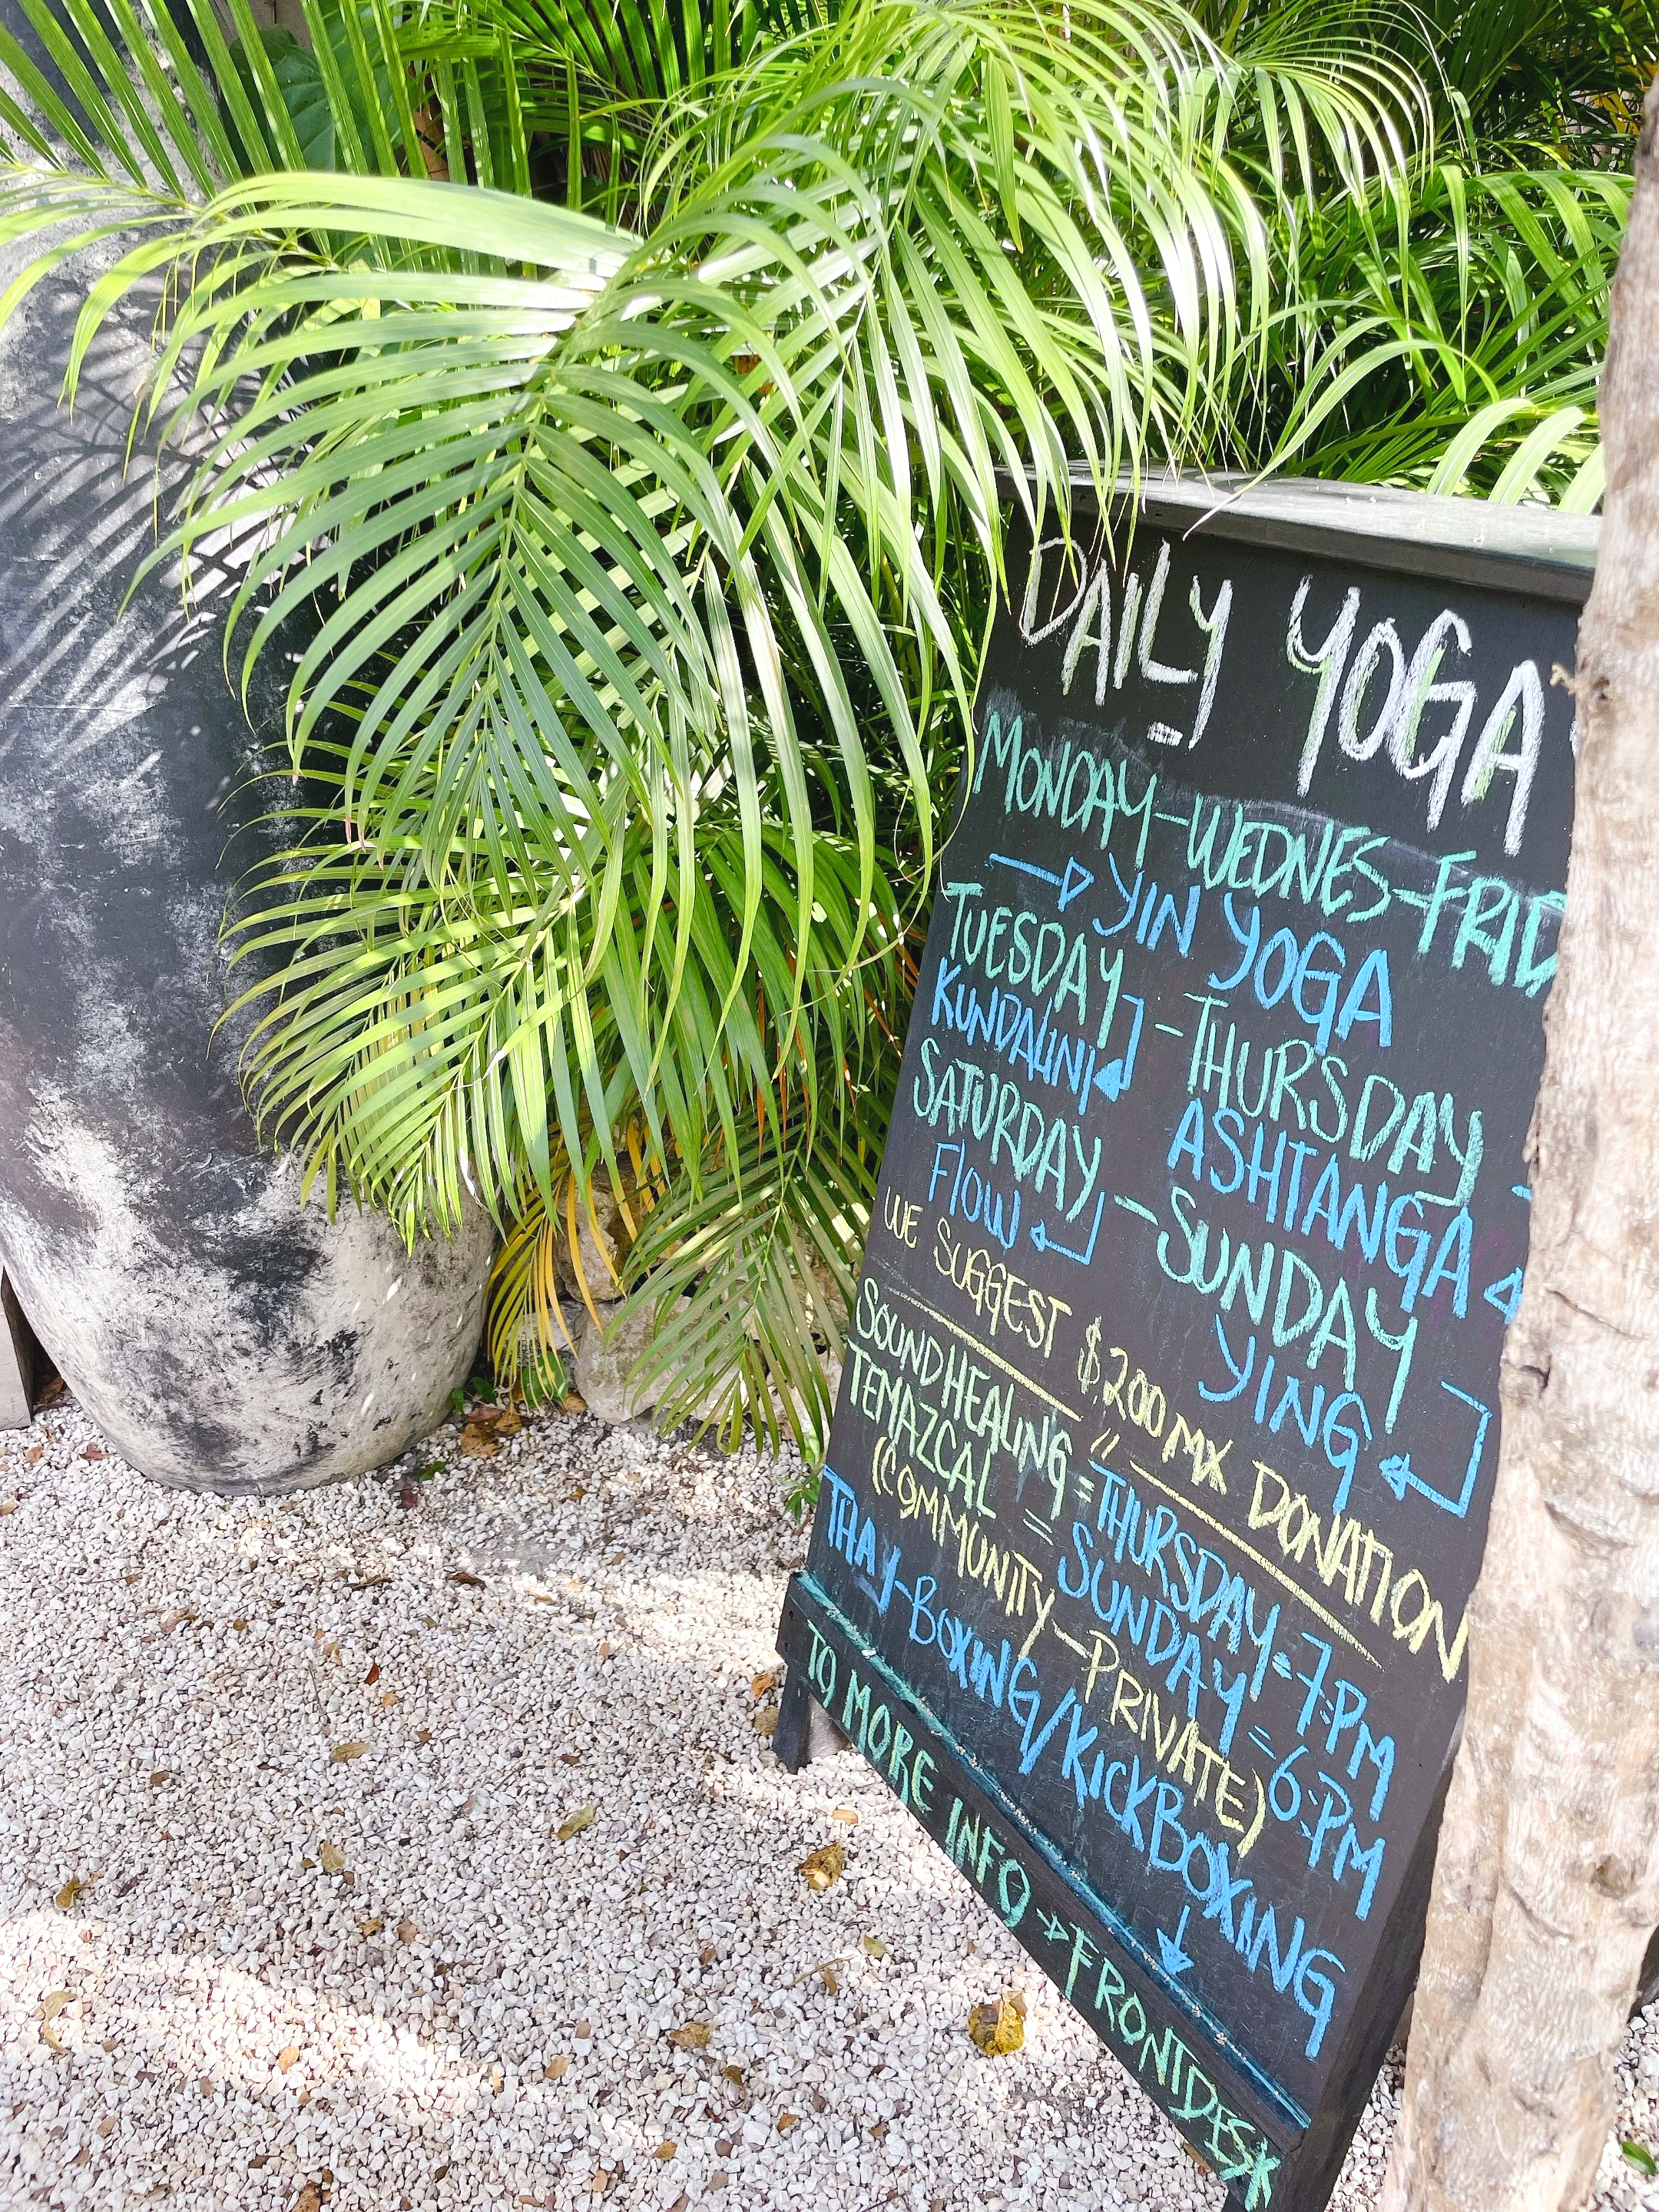 DAILY YOGA
MONDAY-WEDNES-FRID
YIN YOGA
TUESDAY - THURSDAY -
KUNDALINI ASHTANGA
SATURDAY - SUNDAY
FlOW YING
WE SUGGEST $200 MX DONATION
SOUNDHEALING = THURSDAY = 7:PM
TEMAZCAL = SUNDAY = 6:PM
(COMMUNITY-PRIVATE)
THAY-BOXING/KICKBOXING
TO MORE INFO → FRONTDESK